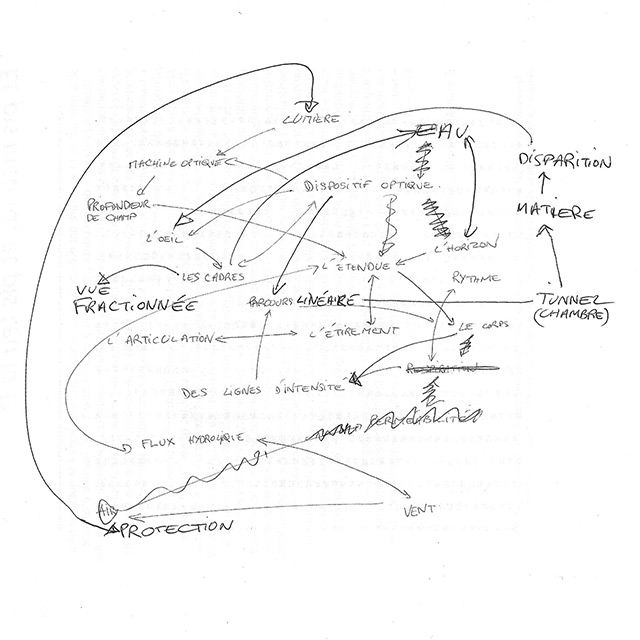 LUMIÈRE
EAU
DISPARITION
MACHINE OPTIQUE
DISPOSITIF OPTIQUE.
PROFONDEUR
DE CHAMP
MATIÈRE
L'OEIL
L'HORIZON
L'ÉTENDUE
LES CADRES
RYTHME
VUE
FRACTIONNÉE
PARCOURS LINÉAIRE
TUNNEL
(CHAMBRE)
L'ARTICULATION
L'ÉTIREMENT
LE CORPS
DES LIGNES D'INTENSITÉ
PERMÉABILITÉ
FLUX
AIR
VENT
PROTECTION